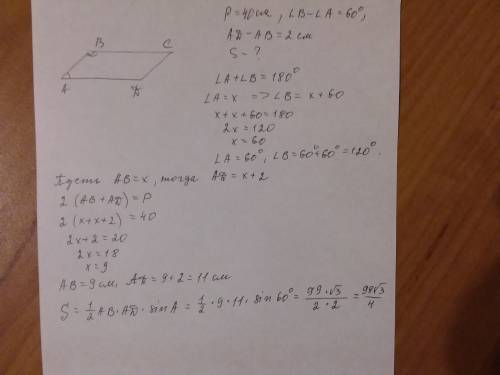 P = 40 см, ∠B – ∠A = 60°,
AD – AB = 2 см
S – ?
B C
A D
∠A + ∠B = 180°
∠A = x => ∠B = x + 60
x + x + 60 = 180
2x = 120
x = 60
∠A = 60°, ∠B = 60° + 60° = 120°.
Пусть AB = x, тогда AD = x + 2
2 (AB + AD) = P
2 (x + x + 2) = 40
2x + 2 = 20
2x = 18
x = 9
AB = 9 см, AD = 9 + 2 = 11 см
S = 1/2 AB · AD · sin A = 1/2 · 9 · 11 · sin 60° = 99 · √3 / 2 · 2 = 98√3 / 4